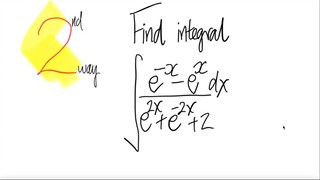 2nd way
Find integral
∫ (e^{-x} - e^{x}) dx / (e^{2x} + e^{-2x} + 2)